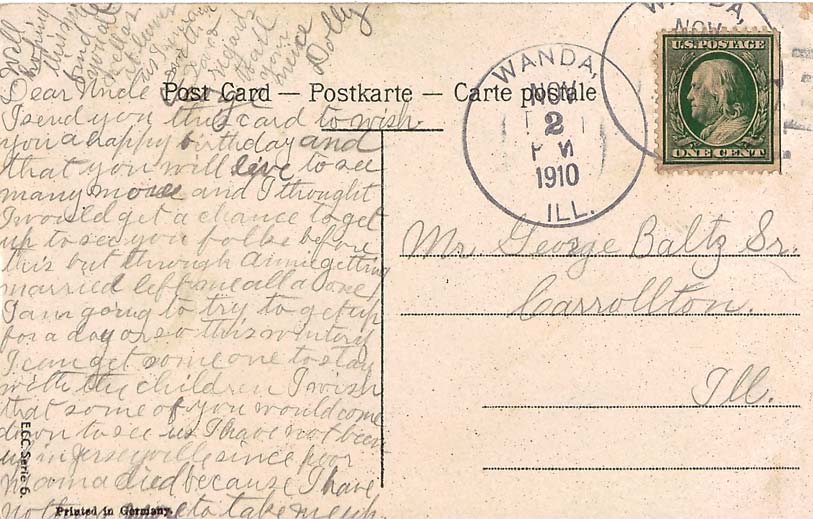 Post Card — Postkarte — Carte postale
Dear Uncle George
I send you this card to wish
you a happy birthday and
that you will live to see
many more and I thought
I would get a chance to get
up to see you folks before
this but through Annie getting
married left me all alone
I am going to try to get up
for a day or so this winter if
I can get some one to stay
with the children I wish
that some of you would come
down to see us I have not been
up in Jerseyville since poor
mama died because I have
nothing more to take me up.
Well
hoping
this
find
you all
well as
with
regards
to all
your
niece
Dolly
WANDA,
NOV
2
PM
1910
ILL.
WANDA,
NOV
U.S. POSTAGE
ONE CENT
Mr. George Baltz Sr.
Carrollton.
Ill.
E.C.C. Serie 6.
Printed in Germany.